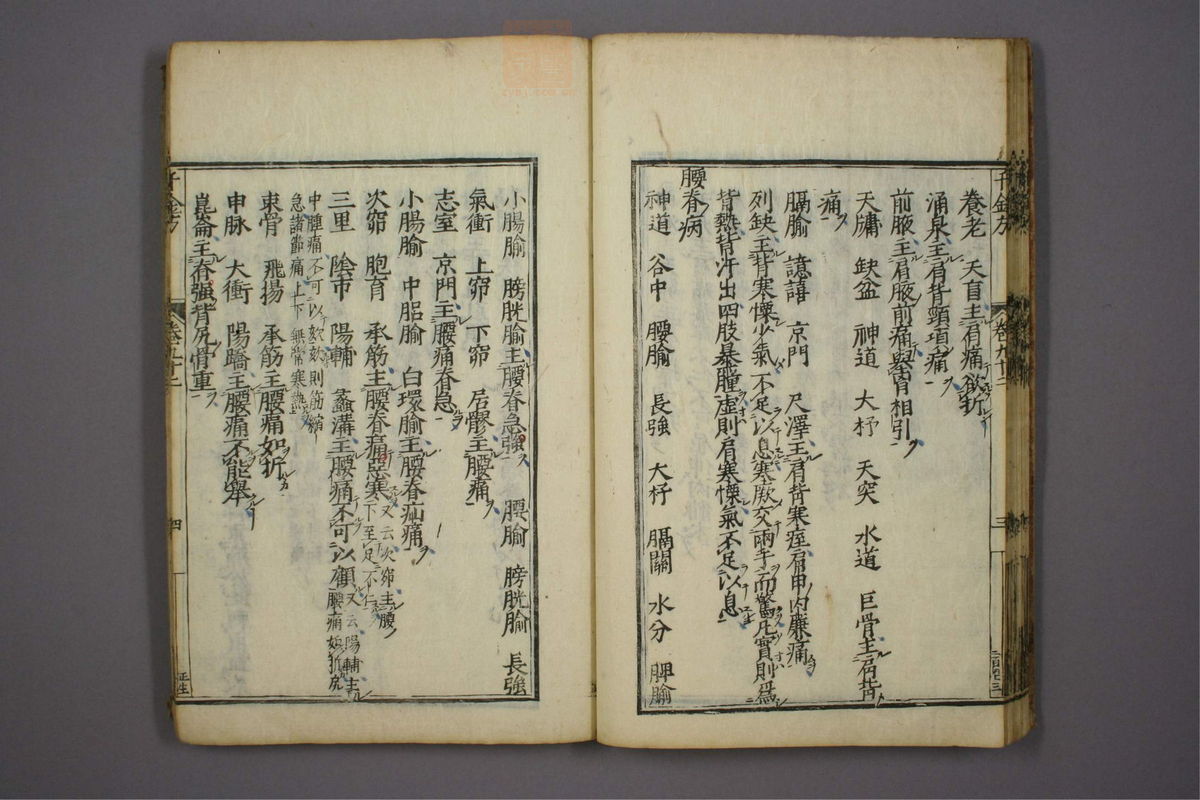 千金方
卷九十二
三
養老　天宗主肩痛欲折
涌泉主肩背頸項痛
前腋主肩腋前痛與胷相引
天牖　缺盆　神道　大杼　天突　水道　巨骨主肩背
痛
膈腧　譩譆　京門　尺澤主肩背寒痓肩甲内廉痛
列缺主肩背寒慄少氣不足以息寒厥交兩手而驚凡實則爲
背熱背汗出四肢暴腫虛則肩寒慄氣不足以息
腰脊病
神道　谷中　腰腧　長強　大杼　膈關　水分　脾腧
小腸腧　膀胱腧主腰脊急強　腰腧　膀胱腧　長強
氣衝　上窌　下窌　居髎主腰痛
志室　京門主腰痛脊急
小腸腧　中䏰腧　白環腧主腰脊疝痛
次窌　胞肓　承筋主腰脊痛惡寒又云次窌主腰下至足不仁
三里　陰市　陽輔　蠡溝主腰痛不可以顧又云陽輔主腰痛如折尻
中腫痛不可以欬欬則筋縮急諸節痛上下無常寒熱
束骨　飛揚　承筋主腰痛如折
申脉　大衝　陽蹻主腰痛不能舉
崑崙主脊強背尻骨重
千金方
卷九十二
四